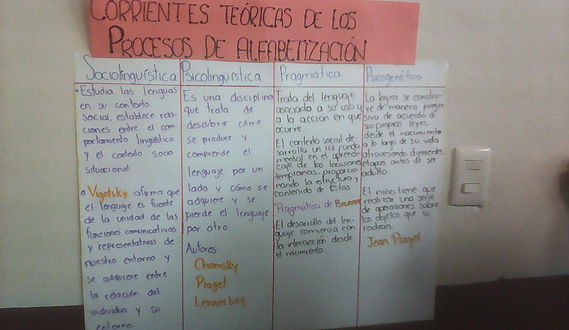 CORRIENTES TEÓRICAS DE LOS
PROCESOS DE ALFABETIZACIÓN
Sociolinguística
Estudia las lenguas
en su contexto
social, establece rela-
ciones entre el com-
portamiento lingüístico
y el contexto socio
situacional
Vigotsky afirma que
el lenguaje es fuente
de la unidad de las
funciones comunicativas
y representativas de
nuestro entorno y
se adquiere entre
la relación del
individuo y su
entorno
Psicolinguística
Es una disciplina
que trata de
descubrir cómo
se produce y
comprende el
lenguaje por un
lado y cómo se
adquiere y se
pierde el lenguaje
por otro.
Autores:
Chomsky
Piaget
Lenneberg
Pragmática
Trata del lenguaje
asociado a su uso y
a la acción en que
ocurre.
El contexto social de-
sarrolla un rol funda
mental en el aprendi
zaje de las locuciones
tempranas, proporcio
nando la estructura y
contenido de éstas
Pragmática de Bruner
El desarrollo del len-
guaje comienza con
la interacción desde
el nacimiento.
Psicogenético
La lógica se constru-
ye de manera progre
siva de acuerdo a
sus propias leyes
desde el nacimiento
a lo largo de su vida
atravesando diferentes
etapas antes de ser
adulto.
El niño tiene que
realizar una serie
de operaciones sobre
los objetos que lo
rodean.
Jean Piaget